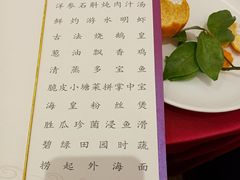 洋参石斛炖肉汁汤
鲜灼游水明虾
古法烧鹅皇
葱油飘香鸡
清蒸多宝鱼
脆皮小塘菜拼掌中宝
海皇粉丝煲
胜瓜珍菌浸鱼滑
碧绿田园蔬
捞起外海面